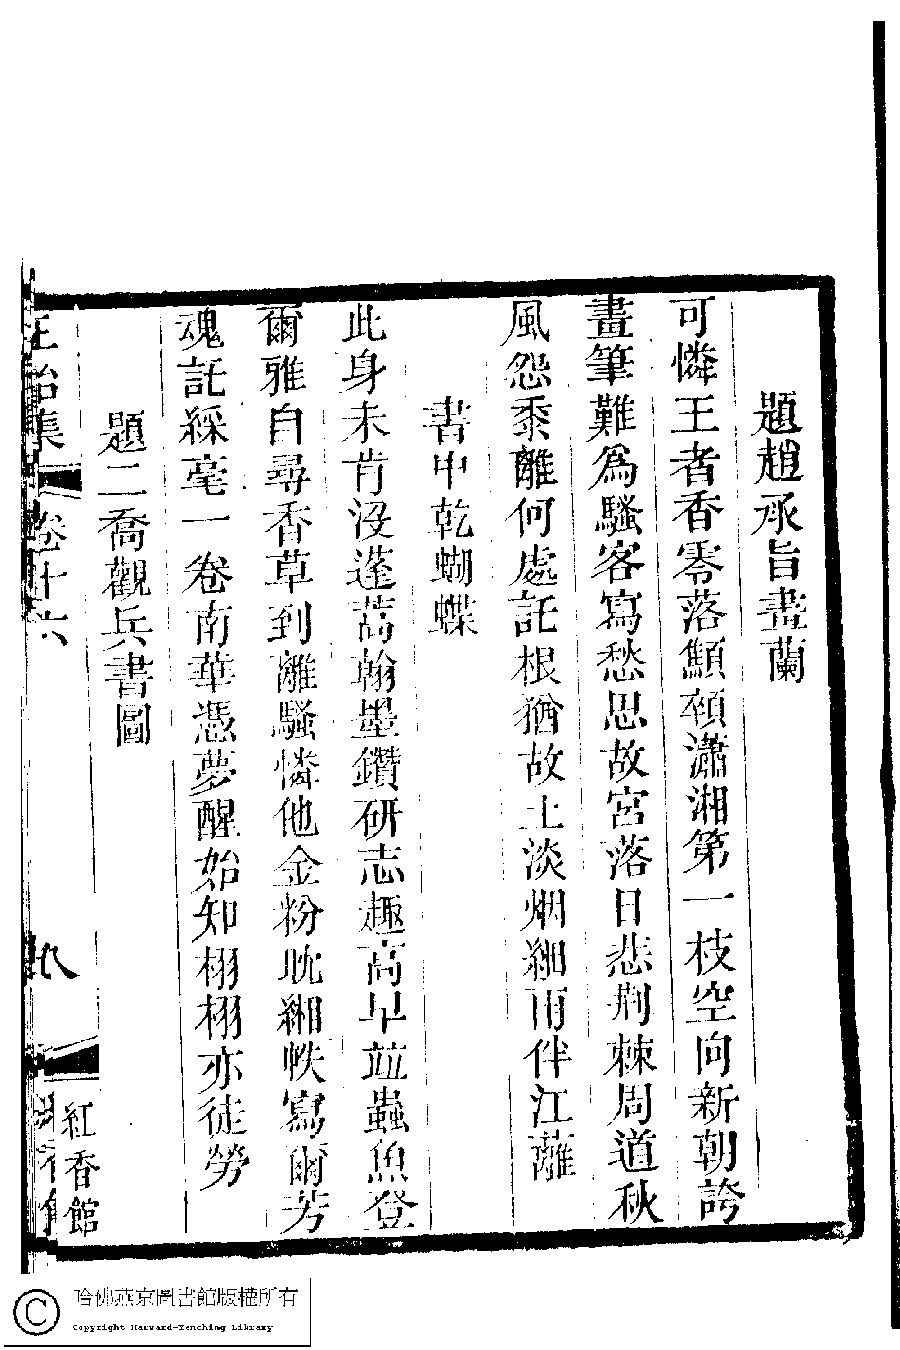 題趙承旨畫蘭
可憐王者香零落顦頓瀟湘第一枝空向新朝誇
畫筆難爲騷客寫愁思故宮落日悲荆棘周道秋
風怨黍離何處託根猶故土淡烟細雨伴江蘺
書中乾蝴蝶
此身未肯沒蓬蒿翰墨鑽研志趣高早竝蟲魚登
爾雅自尋香草到離騷憐他金粉耽緗帙寫爾芳
魂託綵毫一卷南華憑夢醒始知栩栩亦徒勞
題二喬觀兵書圖
集 卷十六
八
紅香館
哈佛燕京圖書館版權所有
Copyright Harvard-Yenching Library